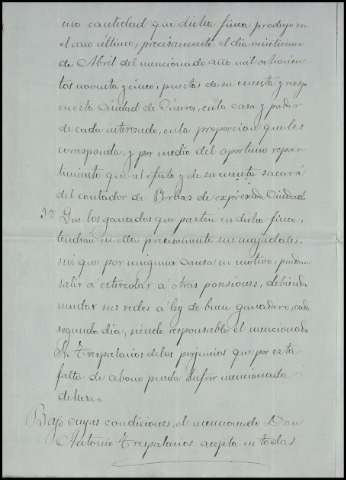 cuo cantidad que dicha finca produjo en
el año último, precisamente el día veintiuno
de Abril del mencionado año mil ochocien-
tos noventa y cinco, puestas de su cuenta y resp
en esta Ciudad de Cáceres, en la casa y poder
de cada interesado, en la proporcion que les
corresponda, y por medio del oportuno repar-
timiento que al efecto y de su cuenta sacará
del contador de Yerbas de expresada Ciudad.
Que los ganados que pasten en dicha finca,
tendrán en ella precisamente sus majadales,
sin que por ninguna causa ni motivo, puedan
salir a estercolar a otras posesiones, debiendo
mudar sus redes a ley de buen ganadero, cada
segundo día, siendo responsable el mencionado
Sr. Trespalacios de los perjuicios que por esta
falta de abono pueda sufrir mencionada
dehesa.
Bajo cuyas condiciones, el mencionado Don
Antonio Trespalacios acepta en todas